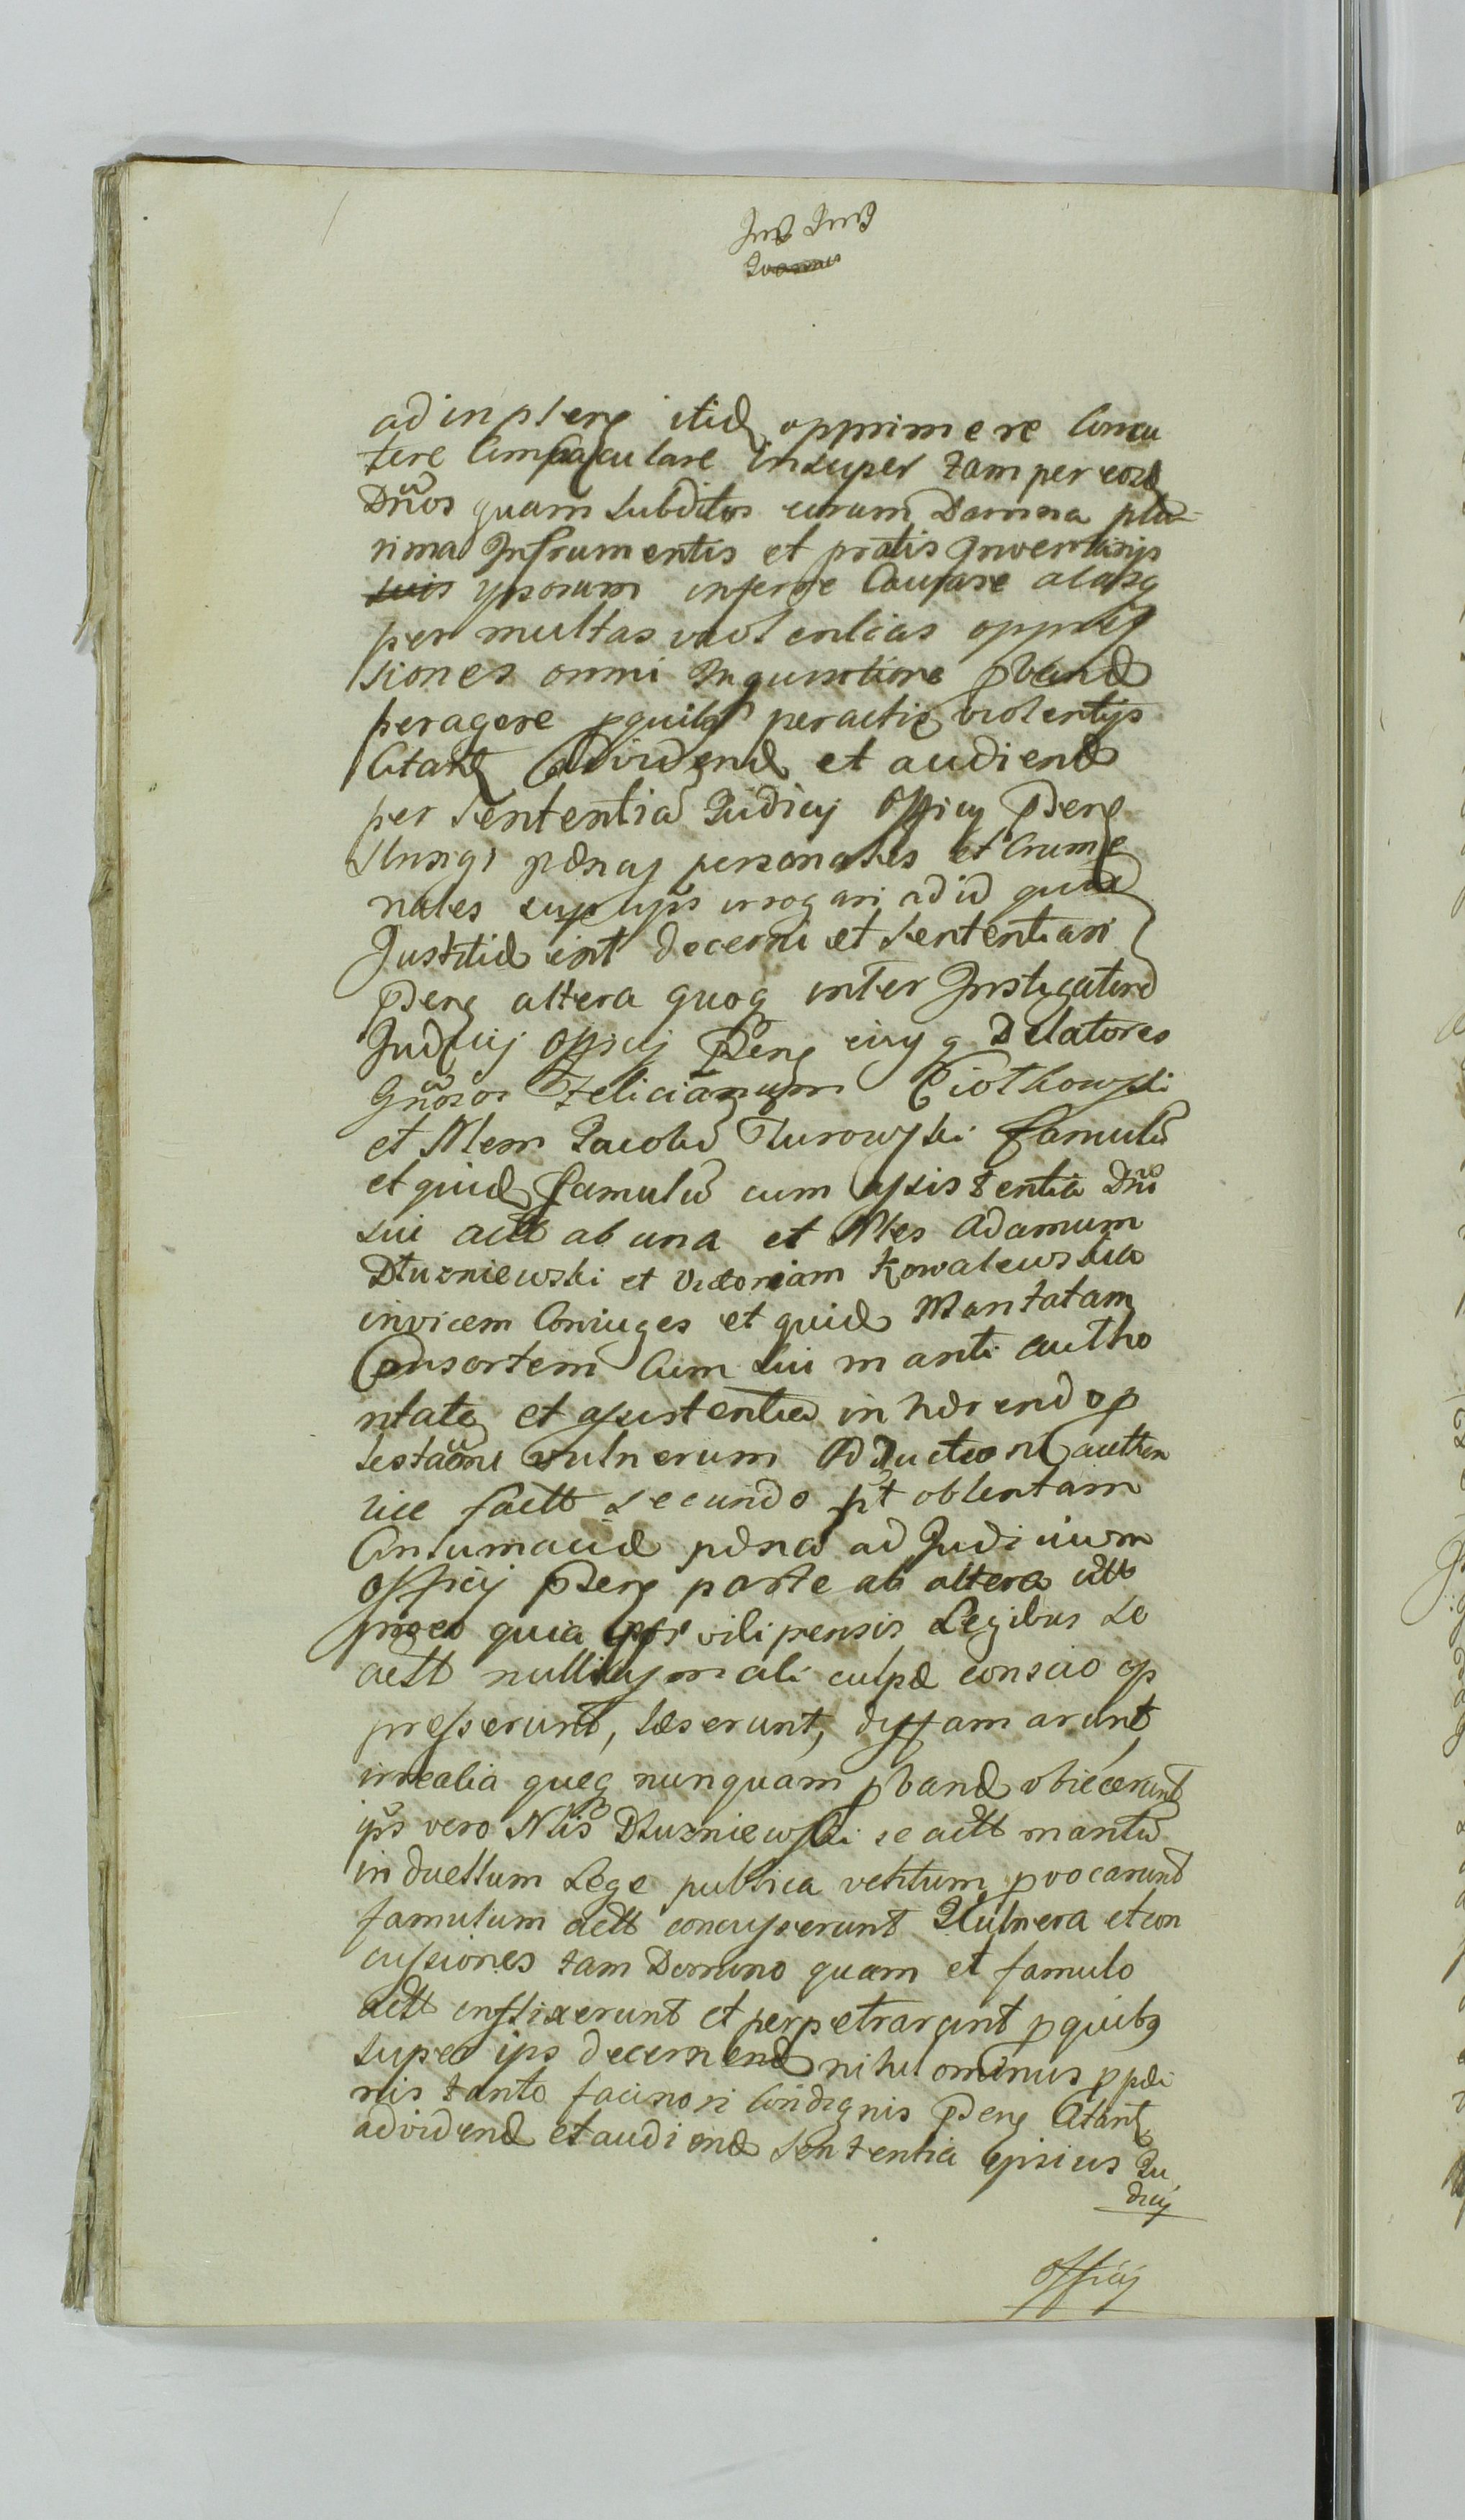 adinplere itid opprimere Concu
tere insuper tam per eosd
Dños quam subditos eorum Damna plu-
rima Infrumentis et pratis
suis ypsorum inferre Causare aliasq
per multas violentias oppres
siones omni Inquisitione pband
peragere pquibq peractis violentijs
Citant advidend et audiend
per Sententiã Judicij Officij Pders
pænas personales et Crimi
nales sup ijs irrogari ad id quid
Justitiæ erit decerni et Sententiari
Pders altera quoq inter Instigatorẽ
Judicij Officij Pders eiusq Delatores
Gñosos Felicianum Ciotkowski
et Nlem Jacobũ Turowski famulũ
et quid famulũ cum assistentia Dñi
sui actt ab una et Nles Adamum
Dłuzniewski et Victoriam Kowalewska
invicem Coniuges et quid Maritatam
Consortem Cum sui mariti autho
ritate et assistentia inhærend op
testãoni vulnerum authen
tice factt secundo pt obtentam
Contumaciæ pæna ad Judicium
Officij Pders parte ab altera actt
proeo quia ipsi vilipensis Legibus se
actt nulliusmali culpæ conscio op
presserunt, læserunt, diffamarunt,
irrealia queq nunquam pband obiecerunt
ips vero Nlis Dłuzniewski se actt maritũ
in duellum Lege publica vetitum pvocarunt
famulum actt concusserunt Vulnera et con
cussiones tam Domino quam et famulo
actt inflixerunt et perpetrarunt pquibq
super ips decernend nihilominus ppæ
nis tanto facinori Condignis Pders Citant
advidend et audiend Sententia ipsius Ju
dicij
Officij